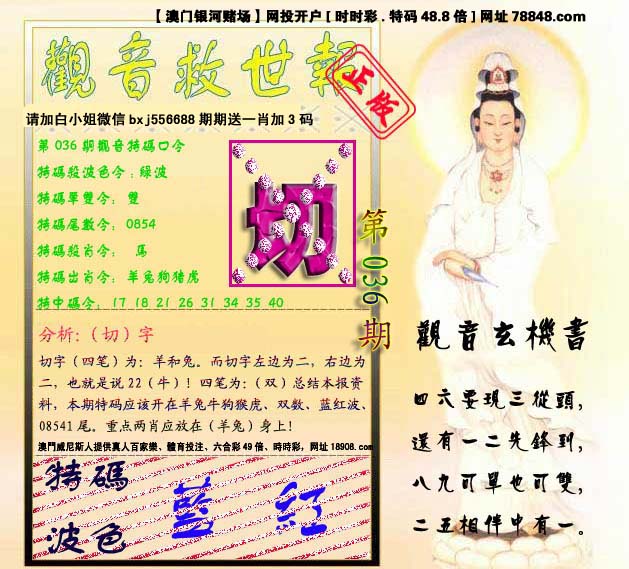 【澳门银河赌场】网投开户[时时彩.特码48.8倍]网址78848.com
觀音救世報
正版
请加白小姐微信bxj556688期期送一肖加3码
第036期觀音特碼口令
特碼殺波色令:绿波
特碼單雙令: 雙
特碼尾數令: 0854
特碼殺肖令: 馬
特碼出肖令: 羊兔狗猪虎
特中碼令: 17 18 21 26 31 34 35 40
切
第036期
分析:(切)字
切字(四笔)为:羊和兔。而切字左边为二,右边为
二,也就是说22(牛)!四笔为:(双)总结本报资
料,本期特码应该开在羊兔牛狗猴虎、双数、蓝红波、
08541尾。重点两肖应放在(羊兔)身上!
澳門威尼斯人提供真人百家樂、體育投注、六合彩49倍、時時彩,网址18908.com
特碼
波色
藍 紅
觀音玄機書
四六要現三從頭,
還有一二先鋒到,
八九可單也可雙,
二五相伴中有一。